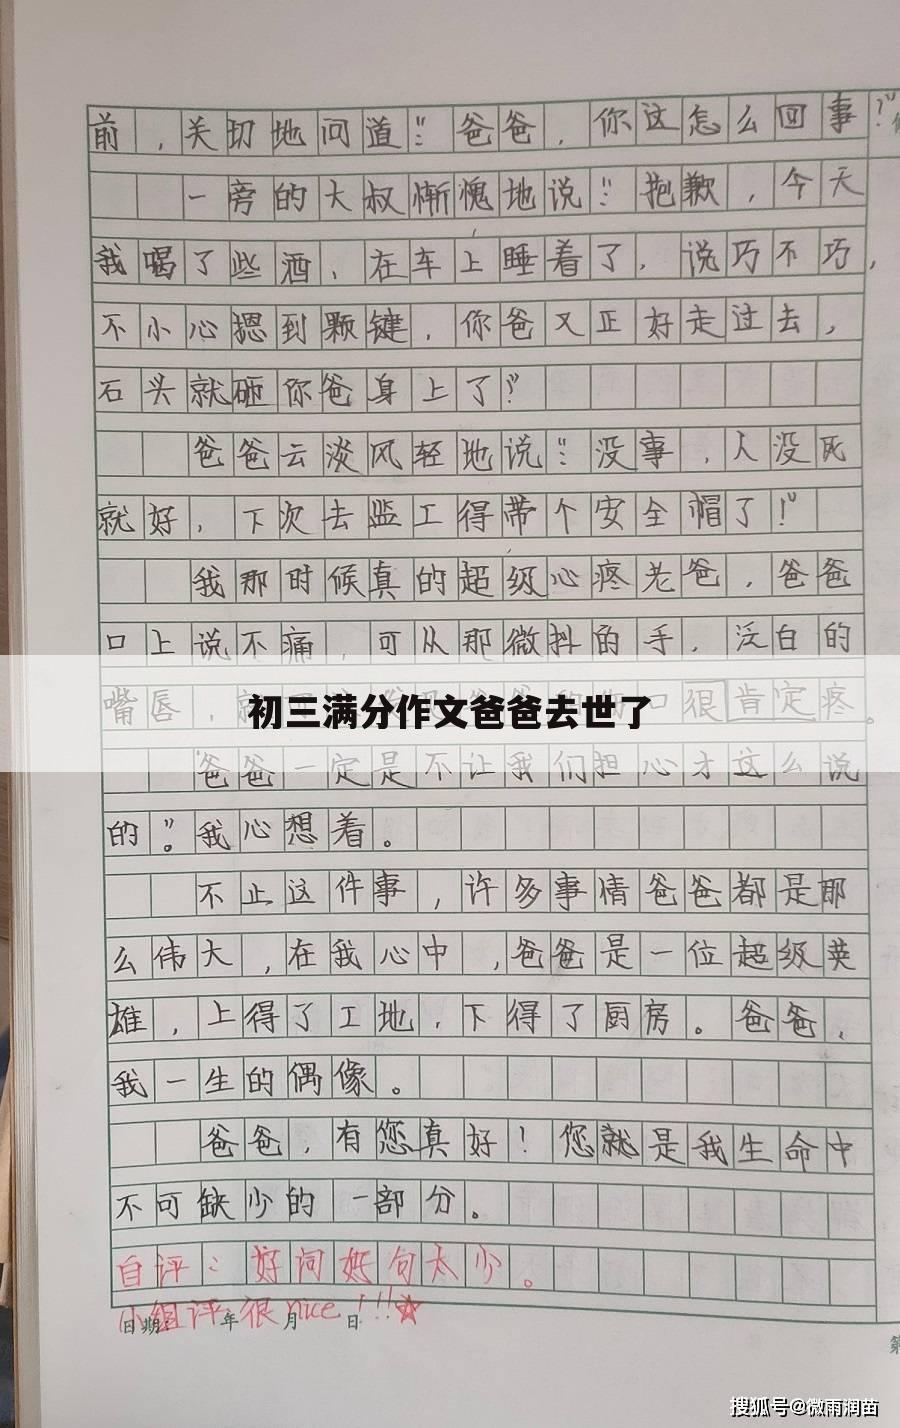 前，关切地问道：“爸爸，你这怎么回事？”
一旁的大叔惭愧地说：“抱歉，今天
我喝了些酒，在车上睡着了，说巧不巧，
不小心摁到颗键，你爸又正好走过去，
石头就砸你爸身上了”
爸爸云淡风轻地说：“没事，人没死
就好，下次去监工得带个安全帽了！”
我那时候真的超级心疼老爸，爸爸
口上说不痛，可从那微抖的手，泛白的
嘴唇，口很肯定疼。
初三满分作文爸爸去世了
“爸爸一定是不让我们担心才这么说
的”。我心想着。
不止这件事，许多事情爸爸都是那
么伟大，在我心中，爸爸是一位超级英
雄，上得了工地，下得了厨房。爸爸，
我一生的偶像。
爸爸，有您真好！您就是我生命中
不可缺少的一部分。
自评：好词好句太少。
小组评：很nice！!!☆
日期： 年 月 日
第
搜狐号@微雨润苗